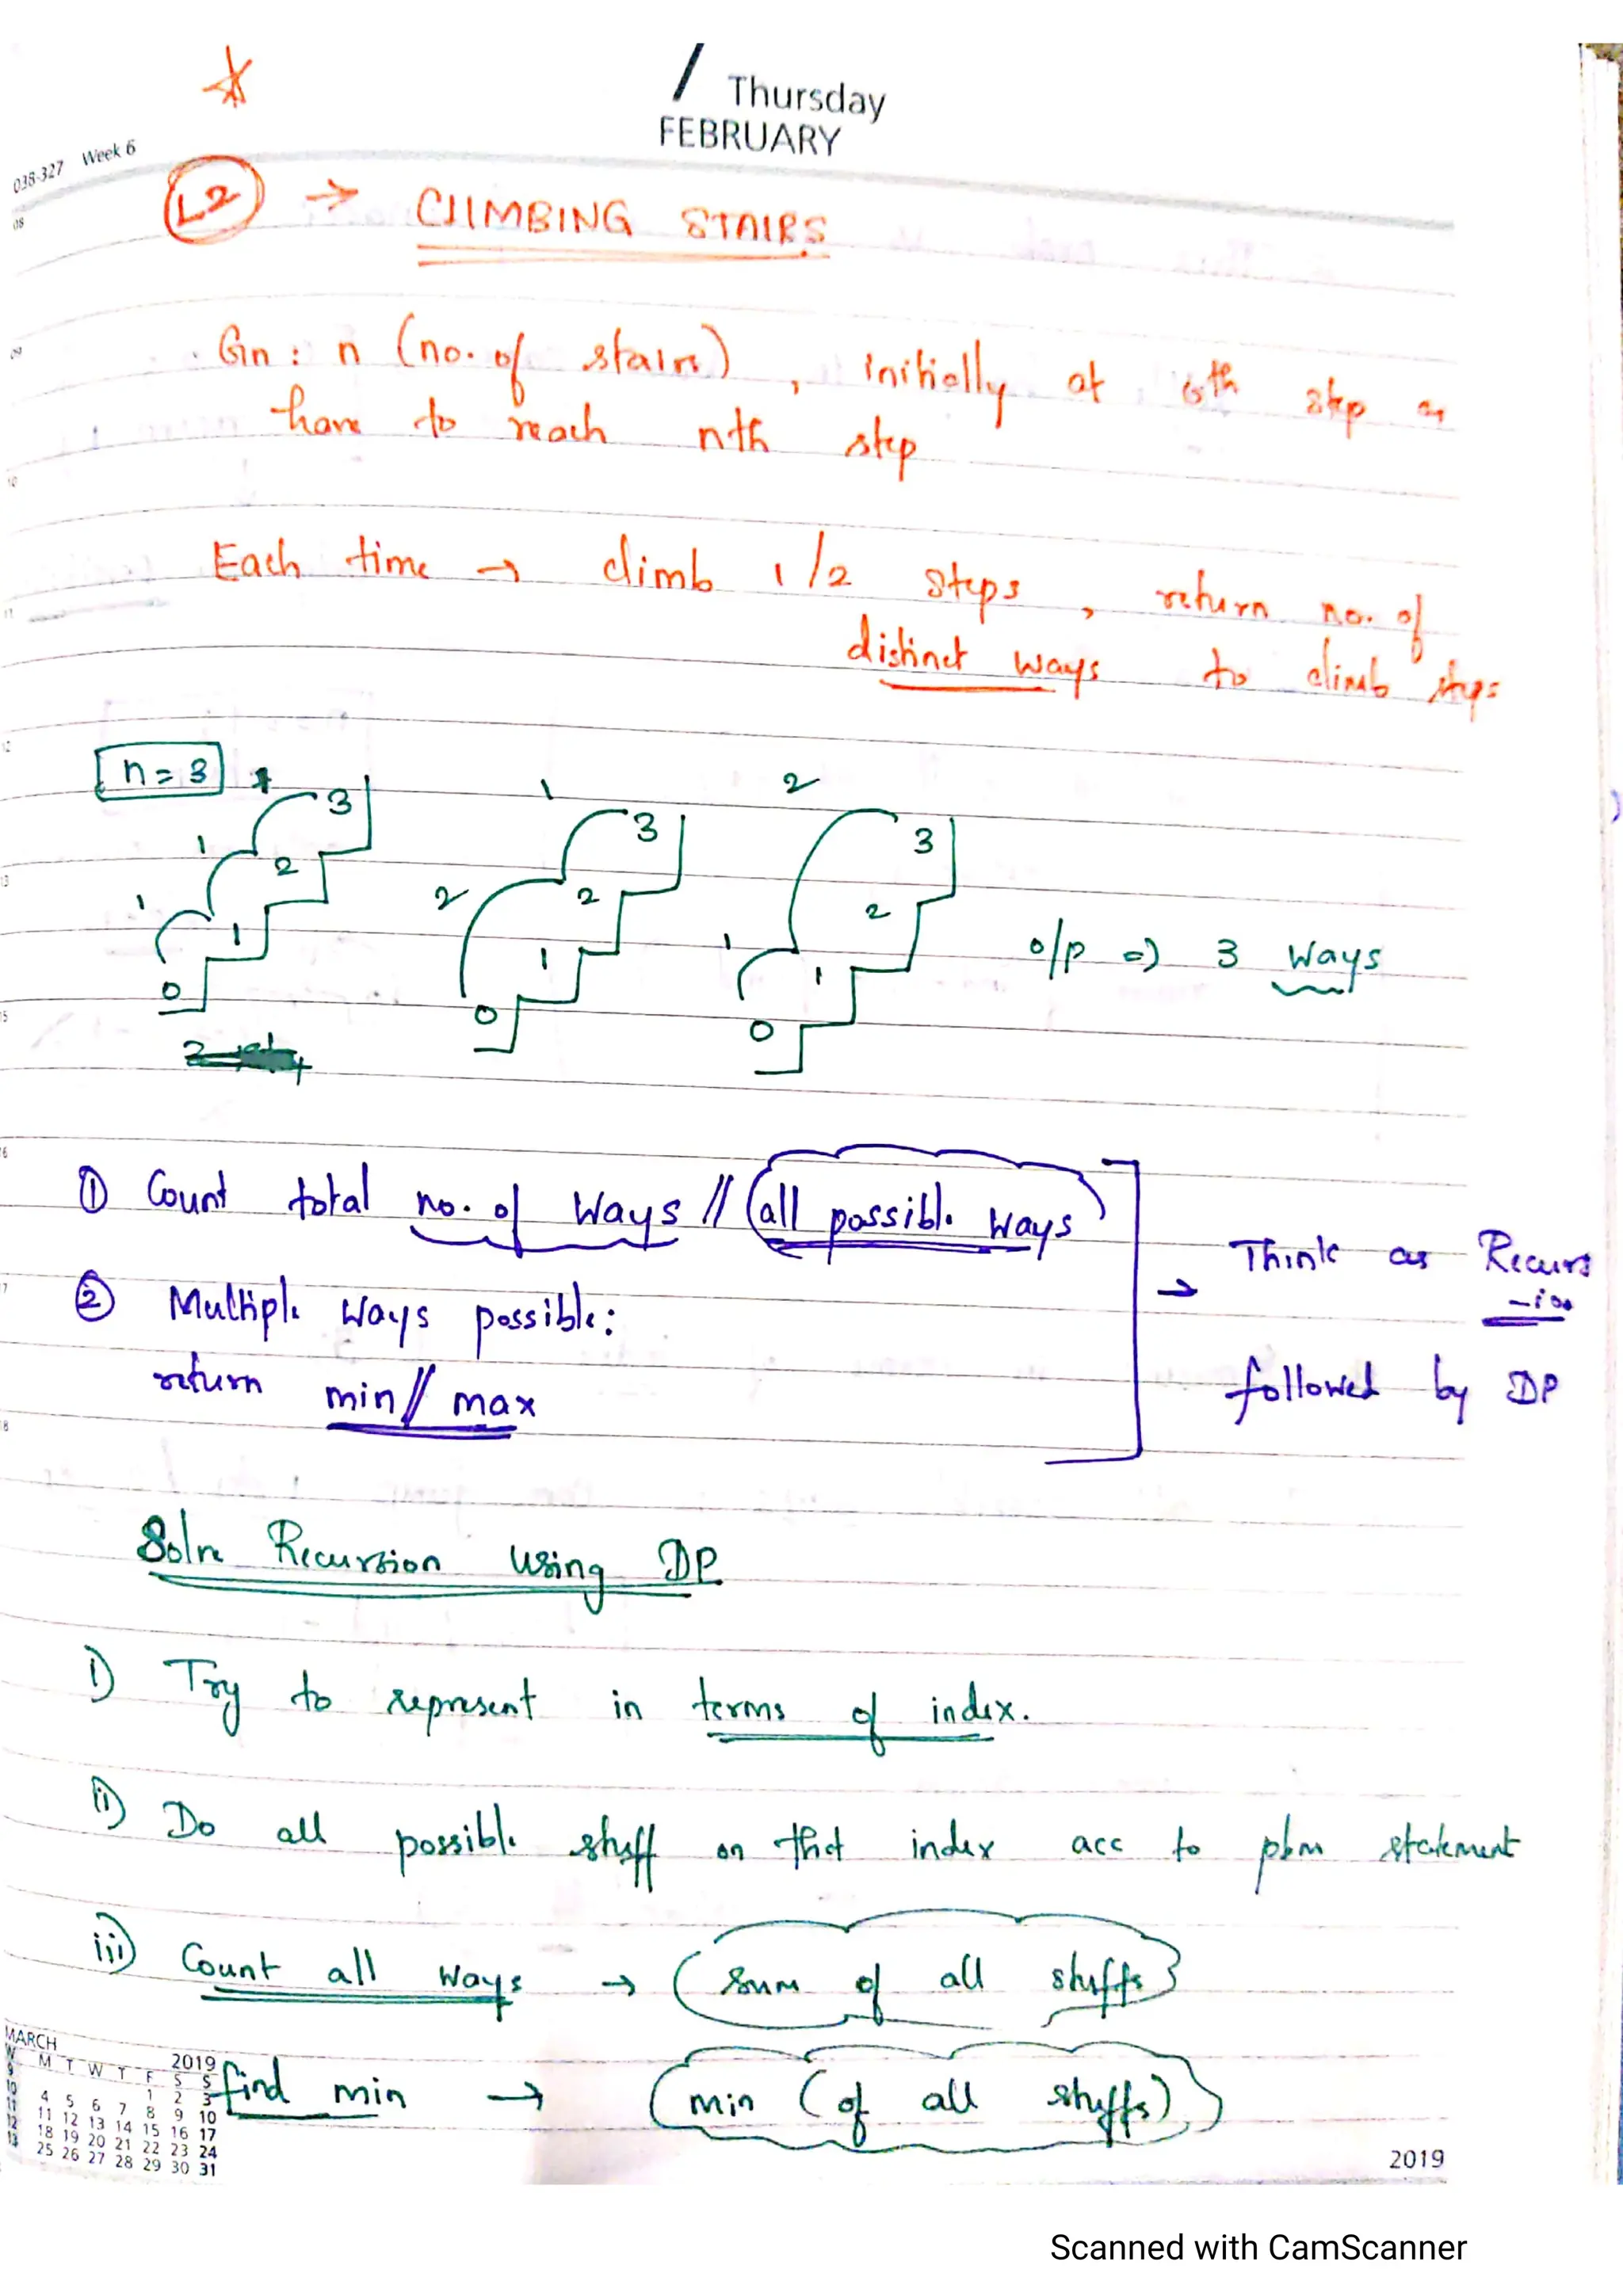 7 Thursday
FEBRUARY
038-327 Week 6
08
L2 → CLIMBING STAIRS
09
Gn : n (no. of stairs) , initially at 0th step
have to reach nth step
10
Each time → climb 1/2 steps , return no. of
11
distinct ways to climb steps
12
n = 3
1 1 1 0 1 2 3
2 1 0 1 2 3
1 2 0 1 2 3
13
o/p => 3 ways
15
16
① Count total no. of ways // all possible ways
② Multiple ways possible:
return min // max
17
→ Think as Recurs
-ion
followed by DP
18
Solve Recursion using DP
i) Try to represent in terms of index.
ii) Do all possible stuff on that index acc to pbm statement
iii) Count all ways → (sum of all stuffs)
find min → (min (of all stuffs))
MARCH 2019
W M T W T F S S
9 1 2 3
10 4 5 6 7 8 9 10
11 11 12 13 14 15 16 17
12 18 19 20 21 22 23 24
13 25 26 27 28 29 30 31
2019
Scanned with CamScanner